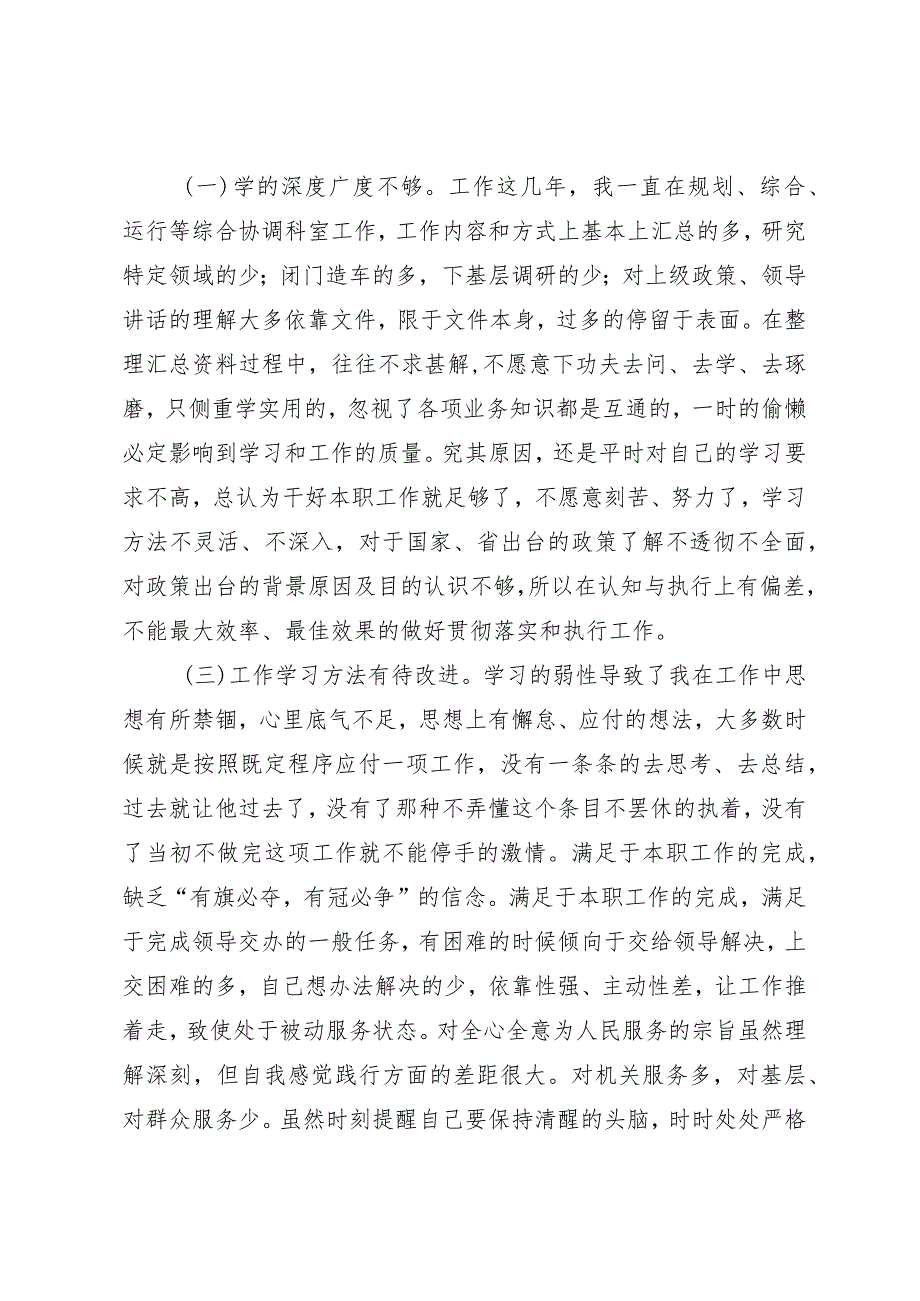 (一)学的深度广度不够。工作这几年，我一直在规划、综合、
运行等综合协调科室工作，工作内容和方式上基本上汇总的多，研究
特定领域的少；闭门造车的多，下基层调研的少；对上级政策、领导
讲话的理解大多依靠文件，限于文件本身，过多的停留于表面。在整
理汇总资料过程中，往往不求甚解,不愿意下功夫去问、去学、去琢
磨，只侧重学实用的，忽视了各项业务知识都是互通的，一时的偷懒
必定影响到学习和工作的质量。究其原因，还是平时对自己的学习要
求不高，总认为干好本职工作就足够了，不愿意刻苦、努力了，学习
方法不灵活、不深入，对于国家、省出台的政策了解不透彻不全面，
对政策出台的背景原因及目的认识不够,所以在认知与执行上有偏差，
不能最大效率、最佳效果的做好贯彻落实和执行工作。
(三)工作学习方法有待改进。学习的弱性导致了我在工作中思
想有所禁锢，心里底气不足，思想上有懈怠、应付的想法，大多数时
候就是按照既定程序应付一项工作，没有一条条的去思考、去总结，
过去就让他过去了，没有了那种不弄懂这个条目不罢休的执着，没有
了当初不做完这项工作就不能停手的激情。满足于本职工作的完成，
缺乏“有旗必夺，有冠必争”的信念。满足于本职工作的完成，满足
于完成领导交办的一般任务，有困难的时候倾向于交给领导解决，上
交困难的多，自己想办法解决的少，依靠性强、主动性差，让工作推
着走，致使处于被动服务状态。对全心全意为人民服务的宗旨虽然理
解深刻，但自我感觉践行方面的差距很大。对机关服务多，对基层、
对群众服务少。虽然时刻提醒自己要保持清醒的头脑，时时处处严格